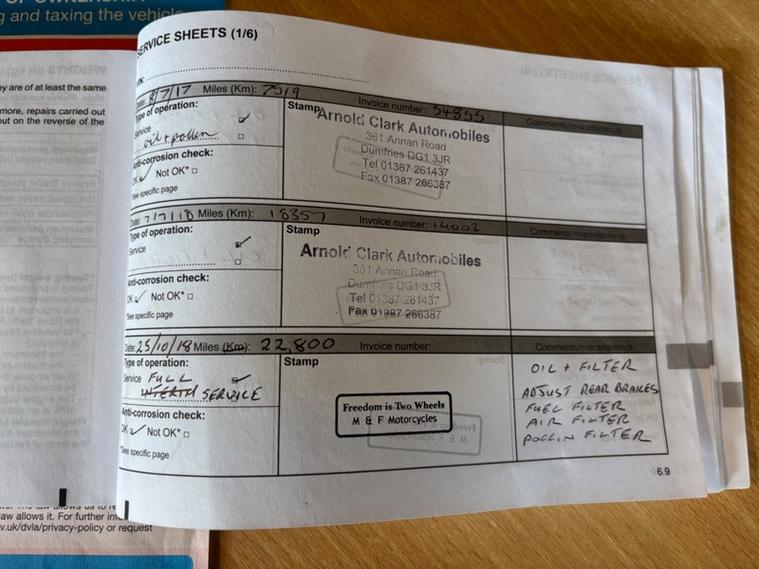 g and taxing the vehicle
ey are of at least the same
more, repairs carried out
out on the reverse of the
SERVICE SHEETS (1/6)
Date: 8/7/17 Miles (Km): 7519 Invoice number: 54855
Type of operation:
Service
oil + pollen
Anti-corrosion check:
OK Not OK*
*See specific page
Stamp
Arnold Clark Automobiles
361 Annan Road
Dumfries DG1 3JR
Tel 01387 261437
Fax 01387 266387
Comments/miscellaneous
Date: 7/7/18 Miles (Km): 18357 Invoice number: 14002
Type of operation:
Service
Anti-corrosion check:
OK Not OK*
*See specific page
Stamp
Arnold Clark Automobiles
361 Annan Road
Dumfries DG1 3JR
Tel 01387 261437
Fax 01387 266387
Comments/miscellaneous
Date: 25/10/18 Miles (Km): 22,800 Invoice number:
Type of operation:
Service FULL
INTERIM SERVICE
Anti-corrosion check:
OK Not OK*
*See specific page
Stamp
Freedom is Two Wheels
M & F Motorcycles
Comments/miscellaneous
OIL + FILTER
ADJUST REAR BRAKES
FUEL FILTER
AIR FILTER
POLLIN FILTER
6.9
law allows it. For further
v.uk/dvla/privacy-policy or request